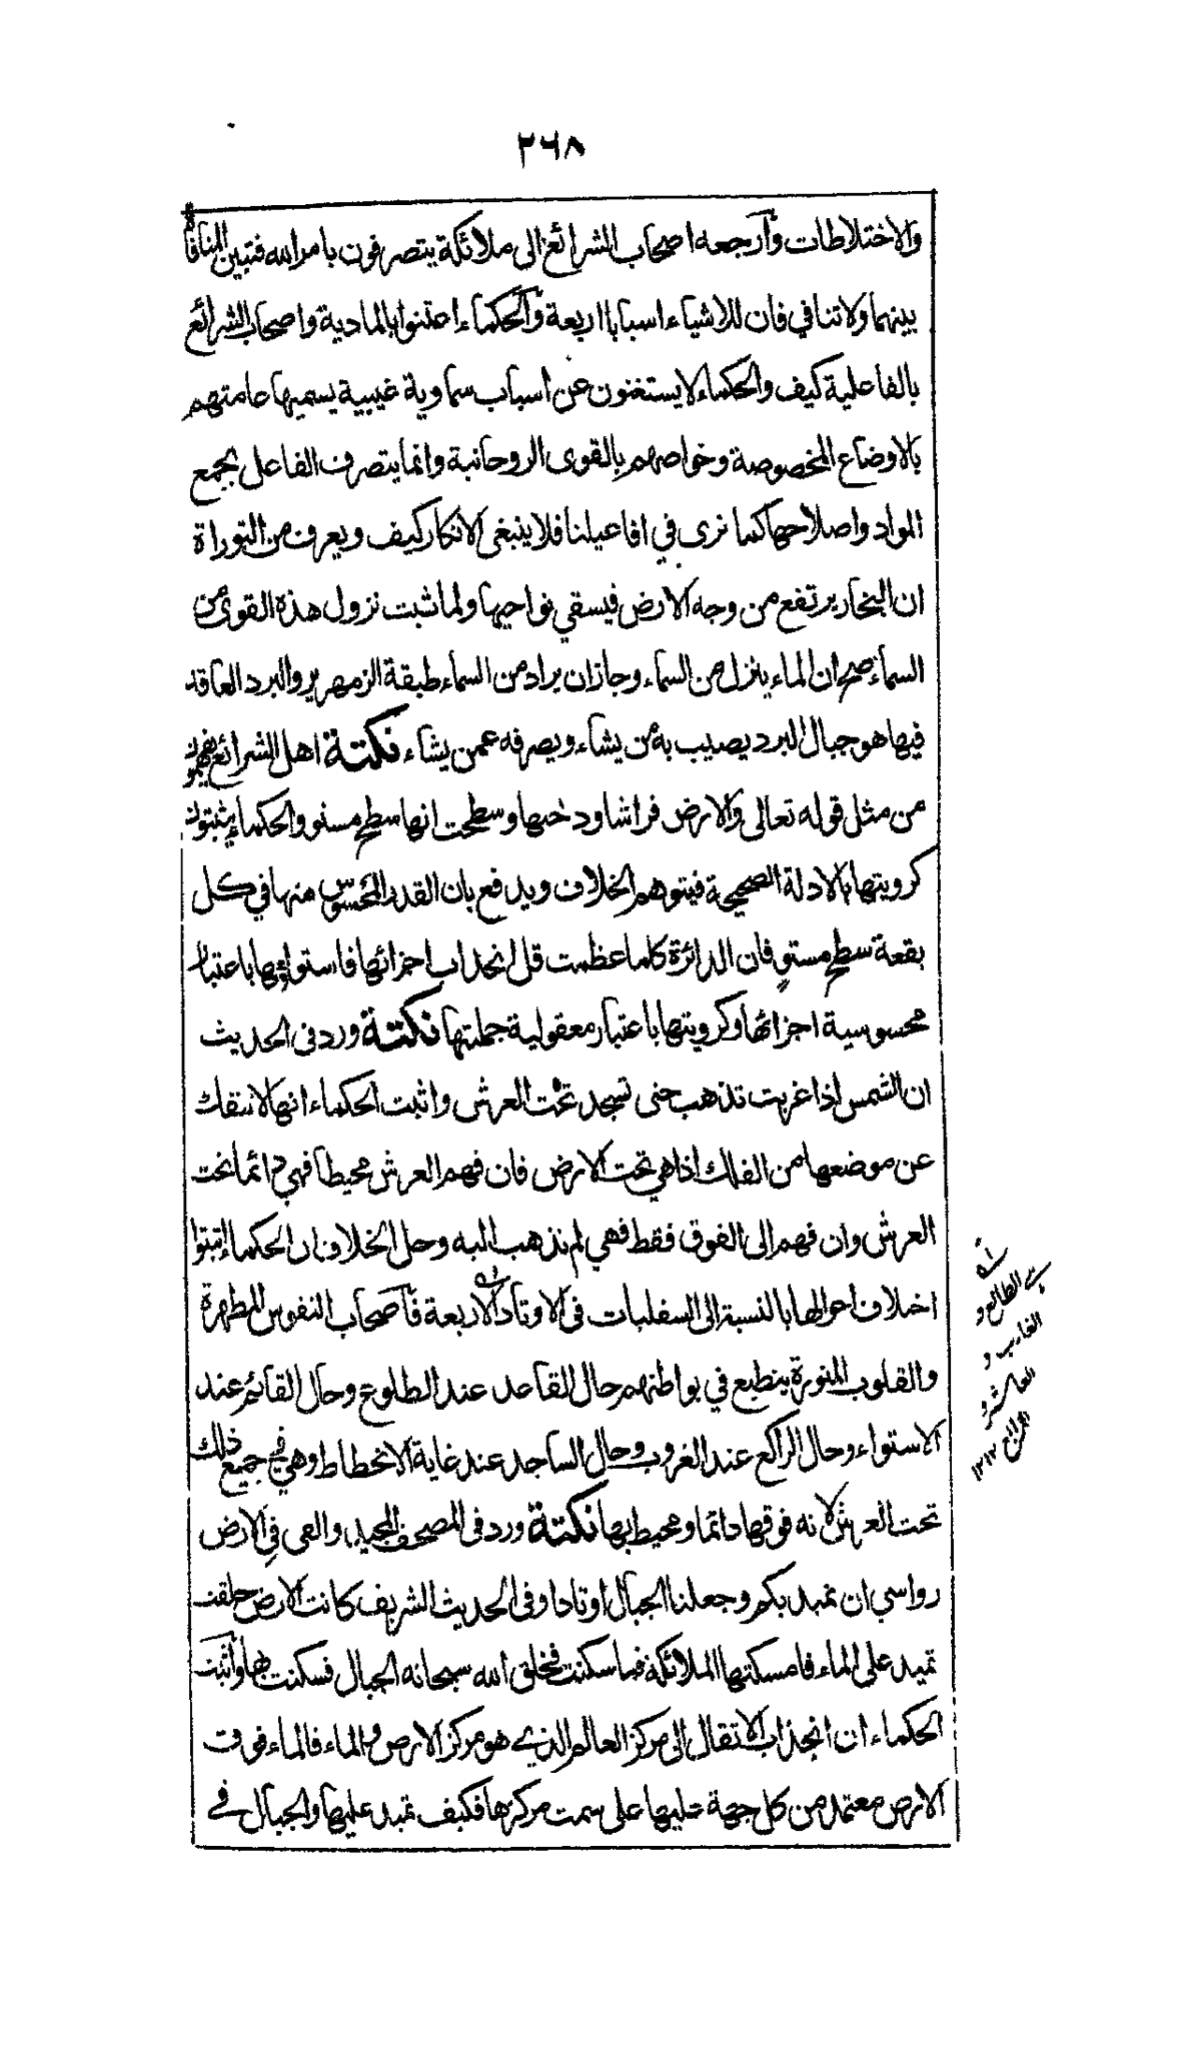 ٢٦٨
والاختلاطات وأرجعه اصحاب الشرائع الى ملائكة يتصرفون بامر الله فتبين المنافاة
بينهما ولا تنافي فان للاشياء اسبابا اربعة والحكماء اعتنوا بالمادية واصحاب الشرائع
بالفاعلية كيف والحكماء لا يستغنون عن اسباب سماوية غيبية يسميها عامتهم
بالاوضاع المخصوصة وخواصهم بالقوى الروحانية وانما يتصرف الفاعل بجمع
المواد واصلاحها كما نرى في افاعيلنا فلا ينبغى الانكار كيف ويعرف من التوراة
ان البخار يرتفع من وجه الارض فيسقي نواحيها ولما ثبت نزول هذه القوى من
السماء صح ان الماء ينزل من السماء وجاز ان يراد من السماء طبقة الزمهرير والبرد العاقد
فيها هو جبال البرد يصيب به من يشاء ويصرفه عمن يشاء نكتة اهل الشرائع يفهمون
من مثل قوله تعالى والارض فراشا ودحيها وسطحت انها سطح مستو والحكماء يثبتون
كرويتها بالادلة الصحيحة فيتوهم الخلاف ويدفع بان القدر المحسوس منها في كل
بقعة سطح مستو فان الدائرة كلما عظمت قل انحداب اجزائها فاستواؤها باعتبار
محسوسية اجزائها وكرويتها باعتبار معقولية جملتها نكتة ورد فى الحديث
ان الشمس اذا غربت تذهب حتى تسجد تحت العرش واثبت الحكماء انها لا تنفك
عن موضعها من الفلك اذا هي تحت الارض فان فهم العرش محيطا فهي دائما تحت
العرش وان فهم الى الفوق فقط فهي لم تذهب اليه وحل الخلاف ان الحكماء اثبتوا
اختلاف احوالها بالنسبة الى السفليات فى الاوتاد الاربعة فأصحاب النفوس المطهرة
والقلوب المنورة ينطبع في بواطنهم حال القاعد عند الطلوع وحال القائم عند
الاستواء وحال الراكع عند الغروب وحال الساجد عند غاية الانحطاط وهي في جميع ذلك
تحت العرش لانه فوقها دائما ومحيط بها نكتة ورد فى المصحف المجيد والقى في الارض
رواسي ان تميد بكم وجعلنا الجبال اوتادا وفى الحديث الشريف كانت الارض خلقت
تميد على الماء فامسكتها الملائكة فما سكنت فخلق الله سبحانه الجبال فسكنت بها وأثبت
الحكماء ان انجذاب الاثقال الى مركز العالم الذي هو مركز الارض والماء فالماء فوق
الارض معتمد من كل جهة عليها على سمت مركزها فكيف تميد عليها والجبال في
اى الطالع و
الغارب و
العاشر و
الرابع ١٢